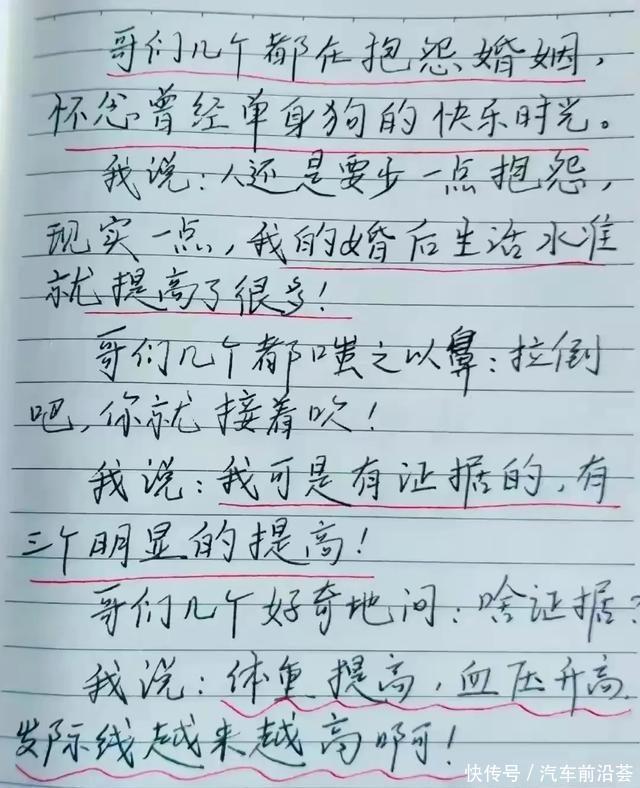 哥们几个都在抱怨婚姻，
怀念曾经单身狗的快乐时光。
我说：人还是要少一点抱怨，
现实一点，我的婚后生活水准
就提高了很多！
哥们几个都嗤之以鼻：拉倒
吧，你就接着吹！
我说：我可是有证据的，有
三个明显的提高！
哥们几个好奇地问：啥证据？
我说：体重提高，血压升高，
发际线越来越高啊！
快传号／汽车前沿荟